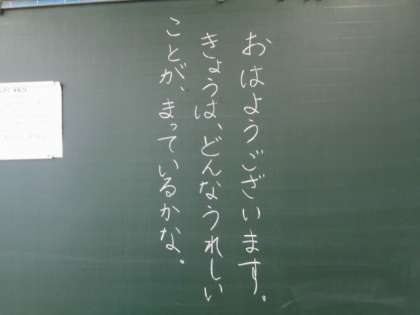 おはようございます。
きょうは、どんなうれしい
ことが、まっているかな。